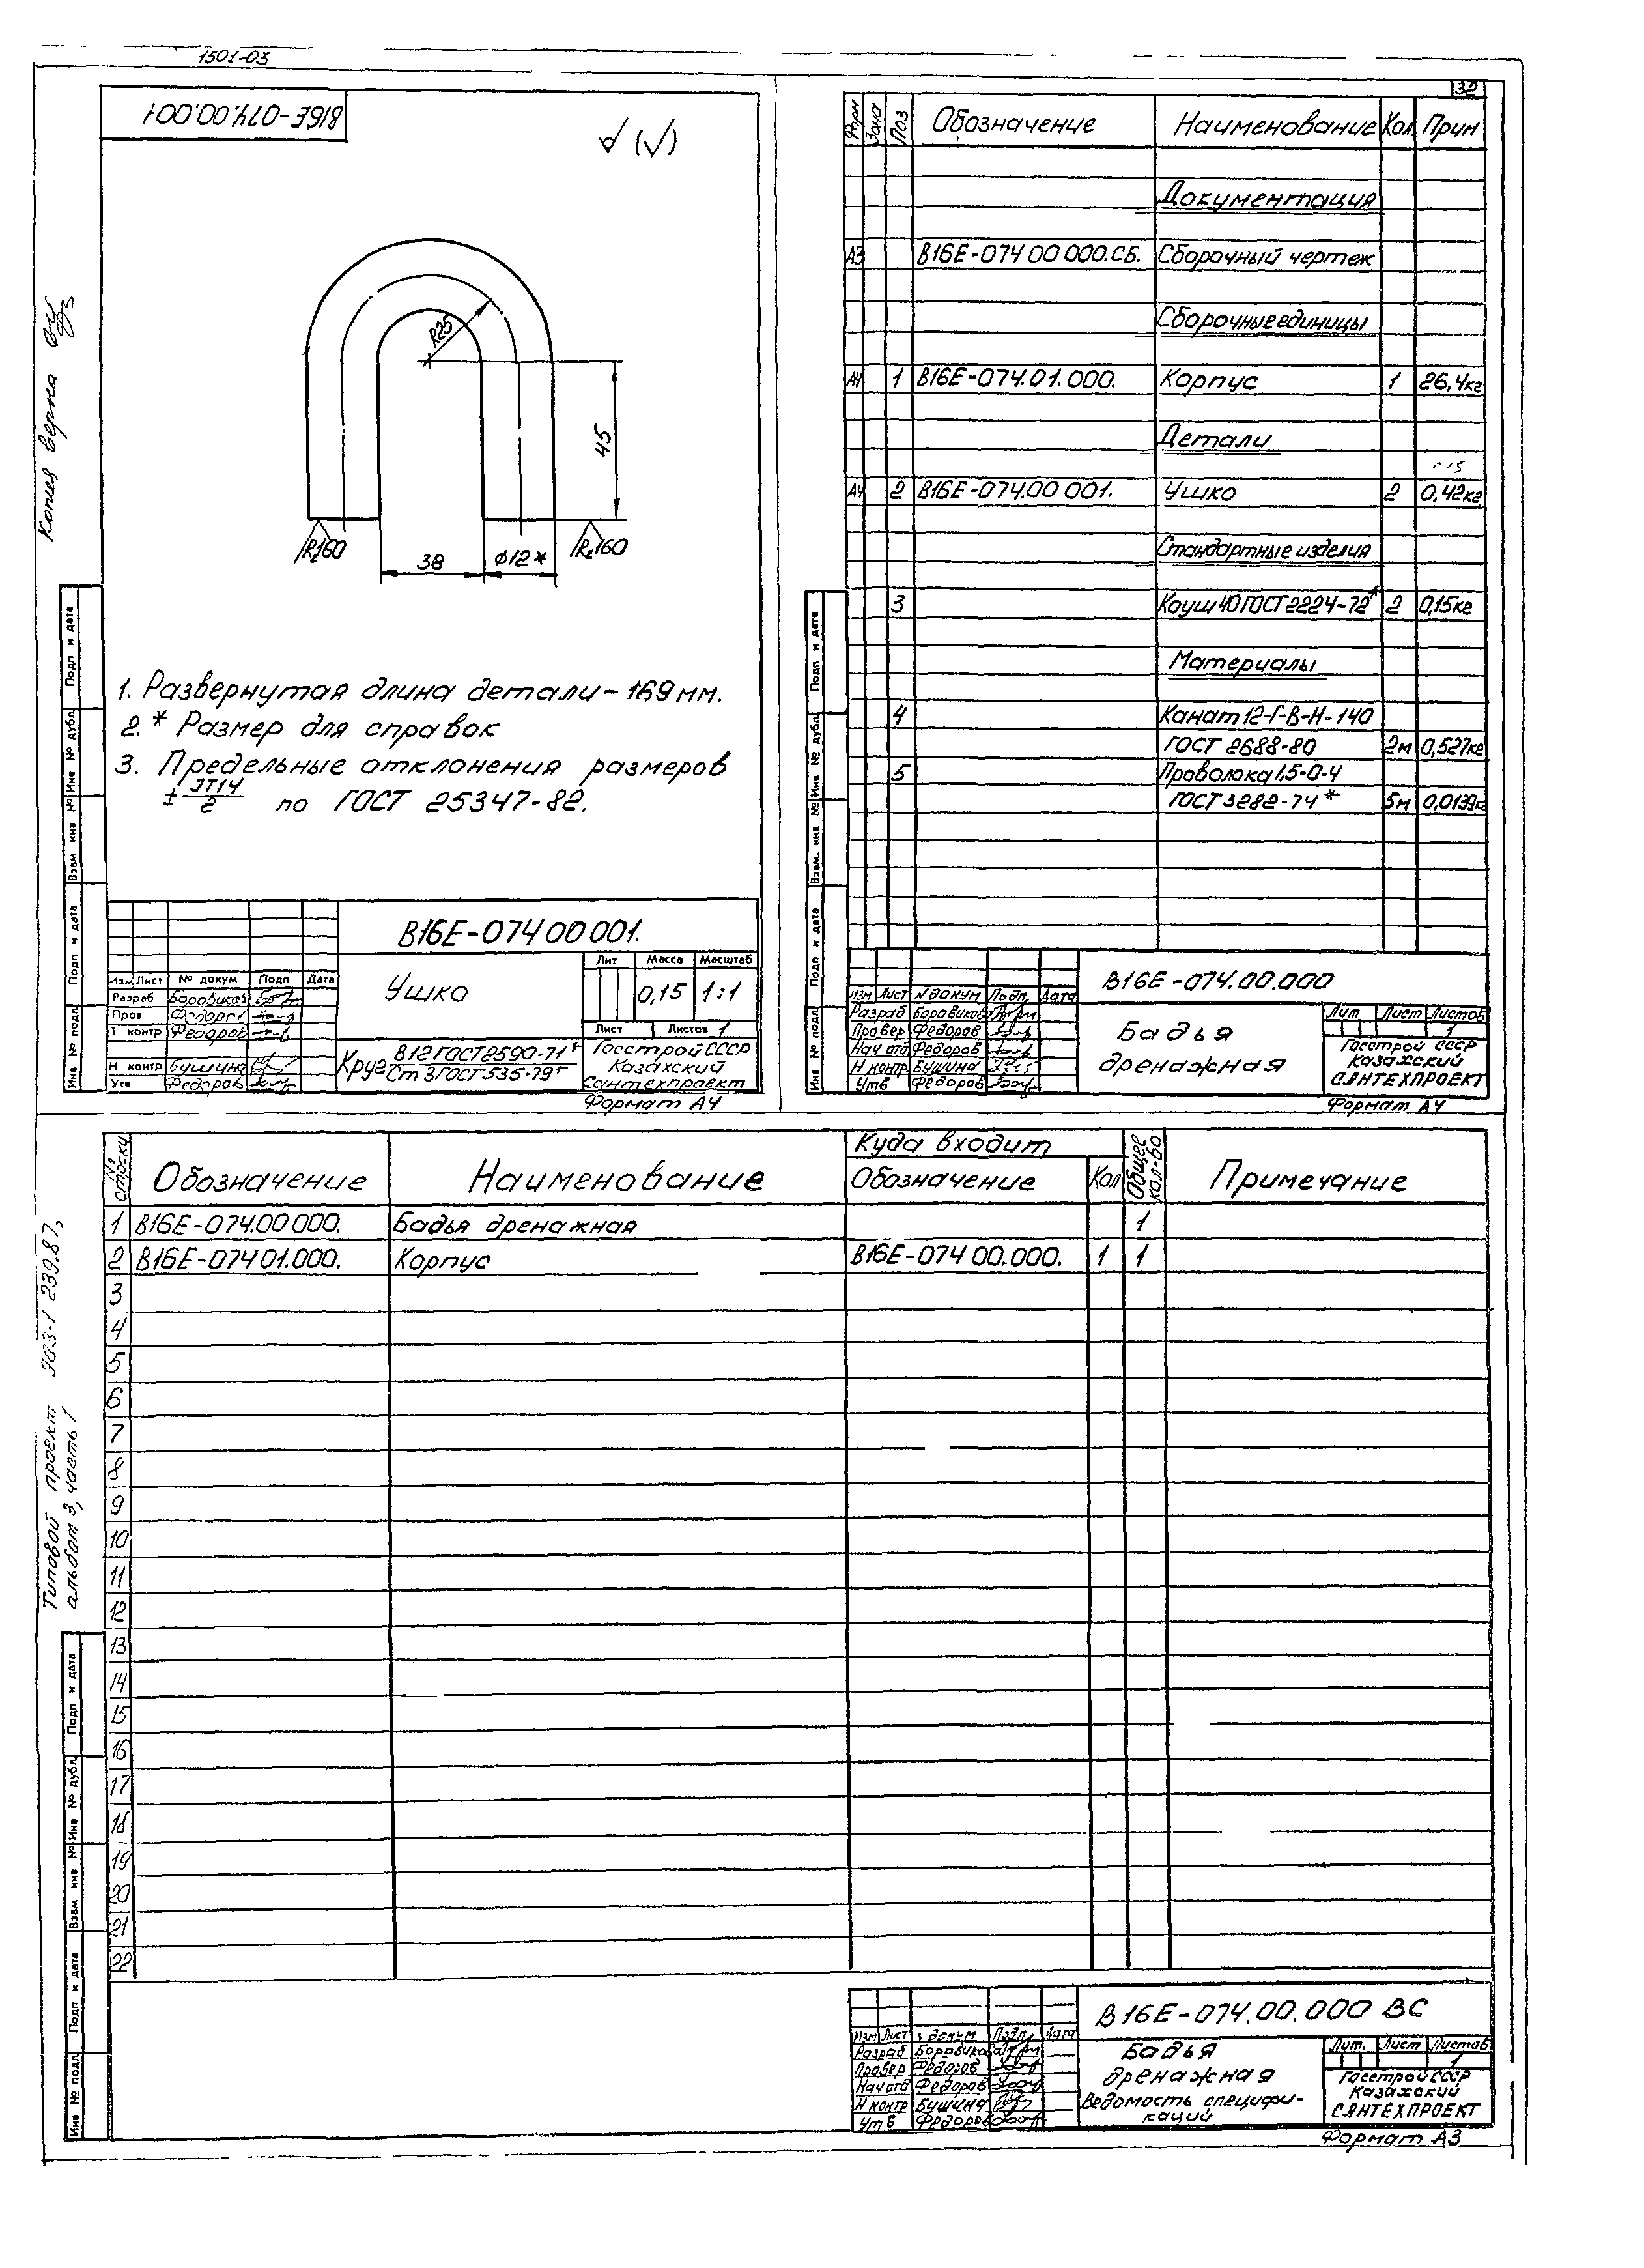 1501-03
32
В16Е-074.00.001
Копия верна
R25
45
Rz160
38
⌀12*
Rz160
1. Развернутая длина детали - 169 мм.
2. * Размер для справок
3. Предельные отклонения размеров
± IT14/2 по ГОСТ 25347-82.
Подп и дата
Инв № дубл
Взам инв №
Подп и дата
Инв № подл
В16Е-074 00 001.
Ушко
Лит Масса Масштаб
0,15 1:1
Лист Листов 1
Изм Лист № докум Подп Дата
Разраб Боровиков
Пров Федоров
Т контр Федоров
Н контр Бушина
Утв Федоров
Круг В12 ГОСТ 2590-71* / Ст 3 ГОСТ 535-79*
Госстрой СССР
Казахский
Сантехпроект
Формат А4
Форм Зона Поз Обозначение Наименование Кол. Прим
Документация
А3 В16Е-074 00 000.СБ. Сборочный чертеж
Сборочные единицы
А4 1 В16Е-074.01.000. Корпус 1 26,4кг
Детали
А4 2 В16Е-074.00 001. Ушко 2 0,42кг
Стандартные изделия
3 Коуш 40 ГОСТ 2224-72* 2 0,15кг
Материалы
4 Канат 12-Г-В-Н-140
ГОСТ 2688-80 2м 0,527кг
5 Проволока 1,5-О-Ч
ГОСТ 3282-74* 5м 0,0139кг
Подп и дата
Инв № дубл
Взам. инв №
Подп и дата
Инв № подл
В16Е-074.00.000
Изм Лист № докум Подп. Дата
Разраб Боровиков
Провер Федоров
Нач отд Федоров
Н контр Бушина
Утв Федоров
Бадья
дренажная
Лит Лист Листов
1
Госстрой СССР
Казахский
САНТЕХПРОЕКТ
Формат А4
Типовой проект 903-1 239.87,
альбом 3, часть 1
№ строки Обозначение Наименование Куда входит Общее кол-во Примечание
Обозначение Кол
1 В16Е-074.00 000. Бадья дренажная 1
2 В16Е-074 01.000. Корпус В16Е-074 00.000. 1 1
3
4
5
6
7
8
9
10
11
12
13
14
15
16
17
18
19
20
21
22
Подп и дата
Инв № дубл
Взам инв №
Подп и дата
Инв № подл
В16Е-074.00.000 ВС
Изм Лист № докум Подп. Дата
Разраб Боровиков
Провер Федоров
Нач отд Федоров
Н контр Бушина
Утв Федоров
Бадья
дренажная
Ведомость специфи-
каций
Лит. Лист Листов
1
Госстрой СССР
Казахский
САНТЕХПРОЕКТ
Формат А3